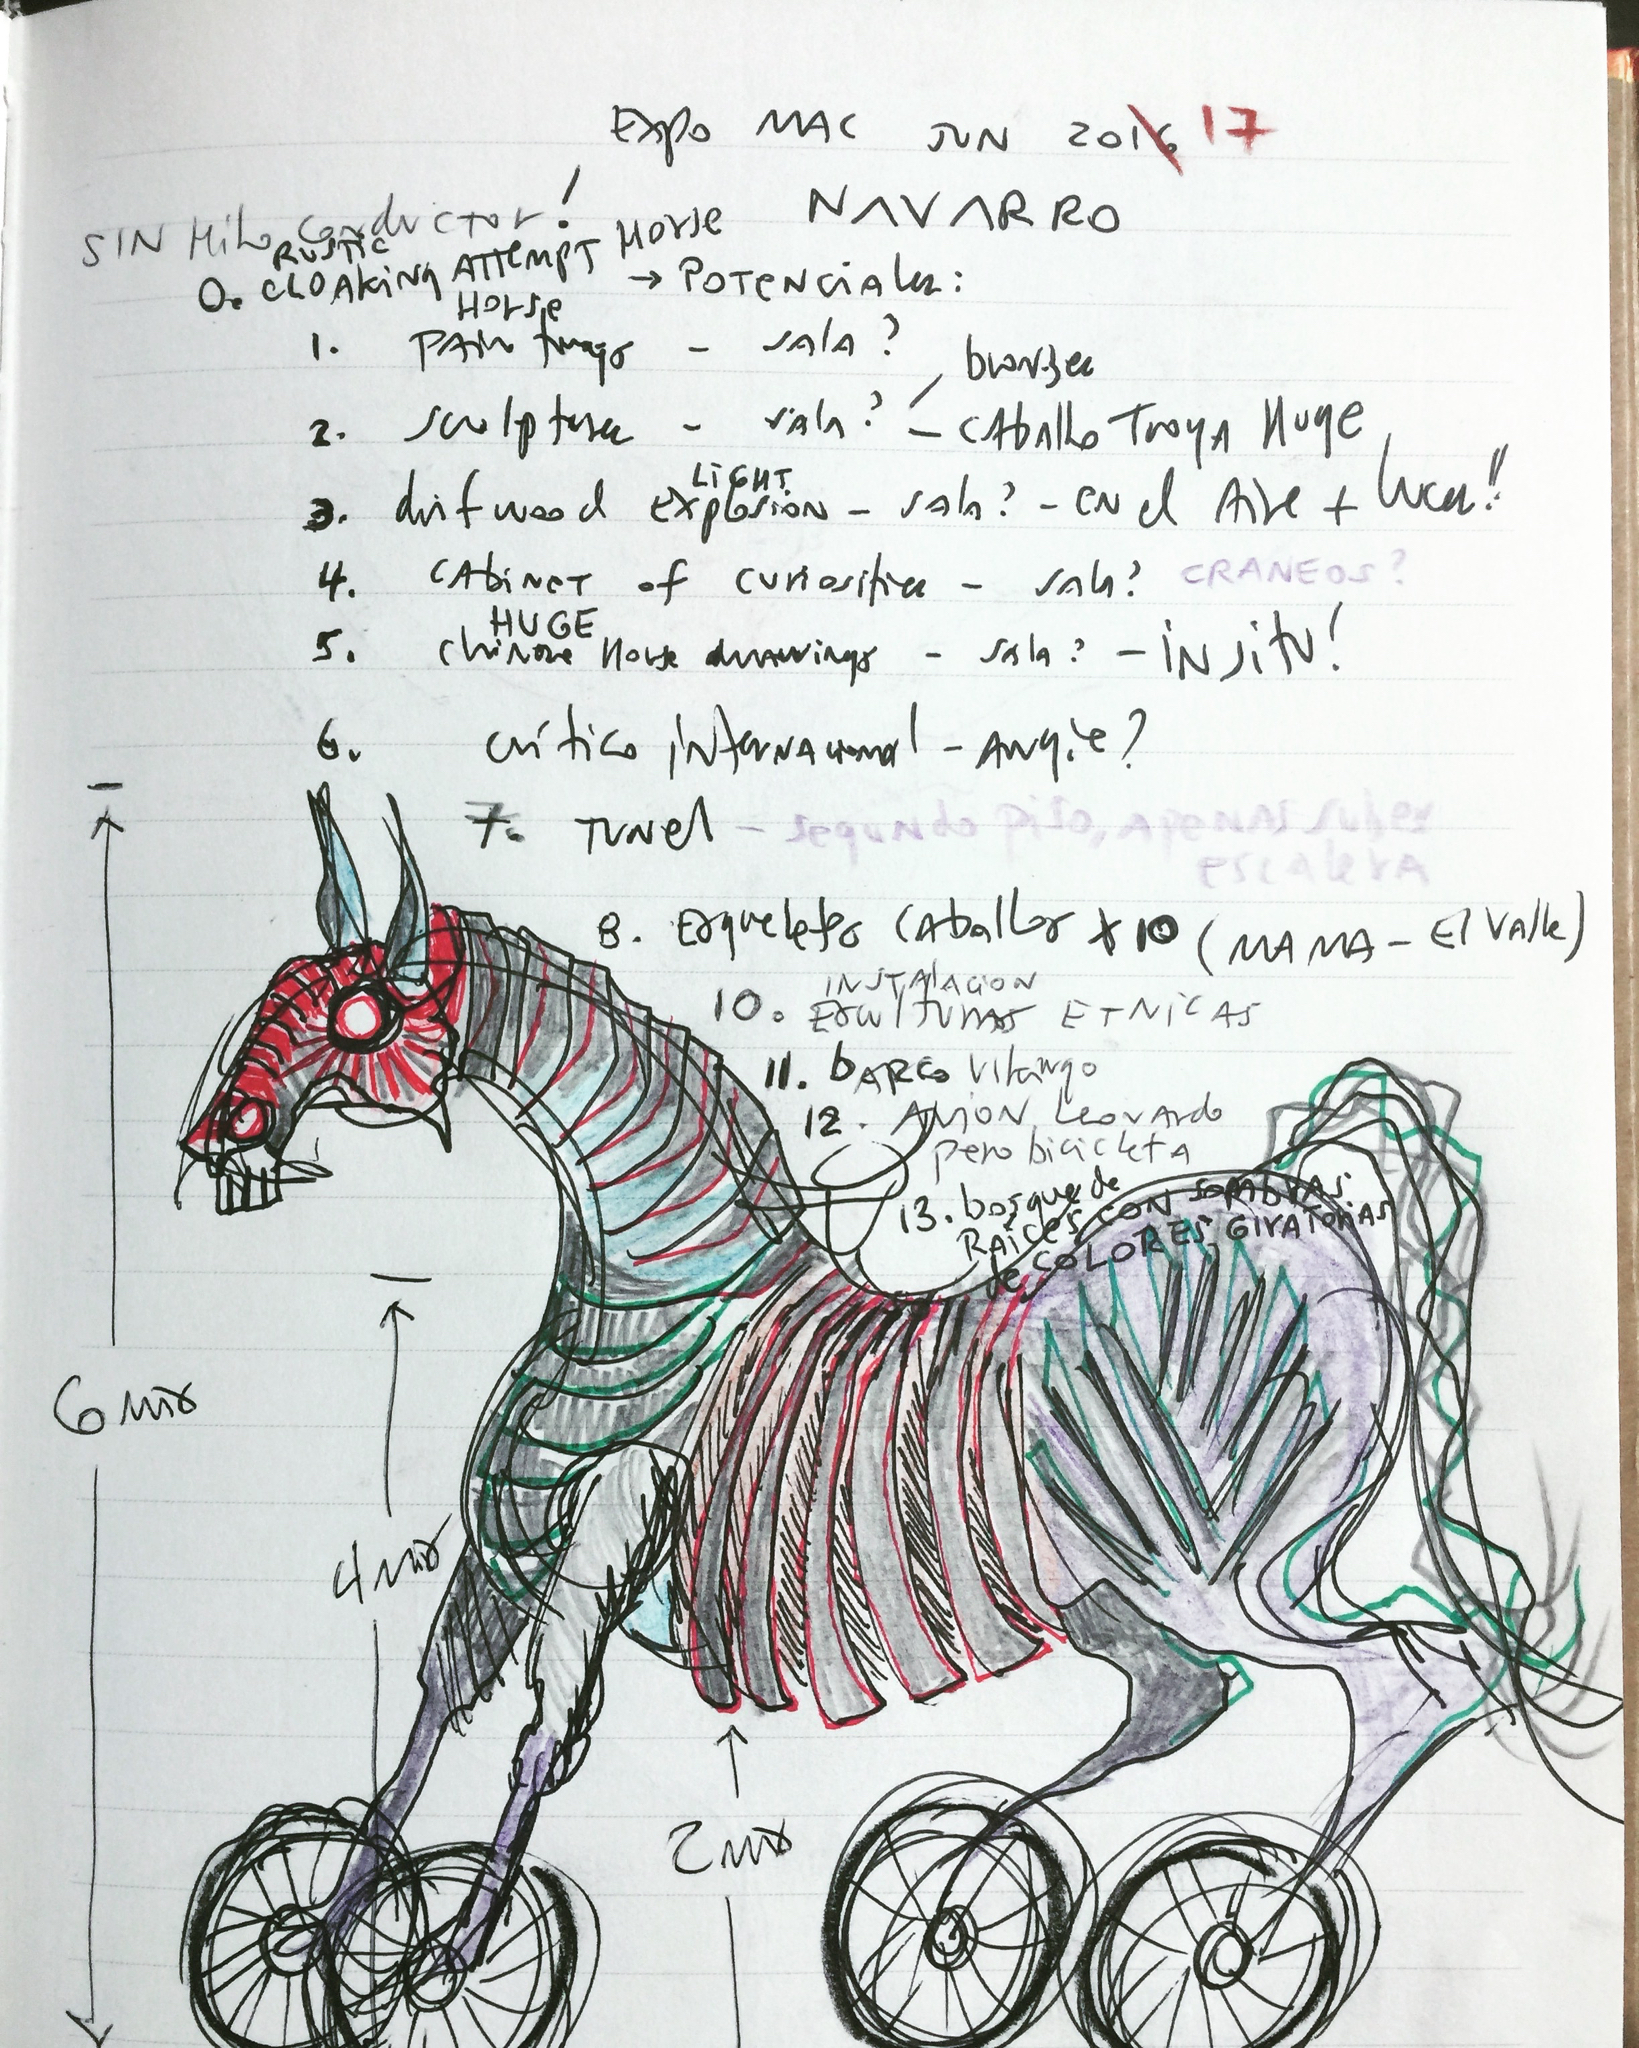 EXPO MAC JUN 2016 17
NAVARRO
SIN Hilo conductor!
0. RUSTIC CLOAKING ATTEMPT HORSE → POTENCIALES:
HORSE
1. paintings - sala?
bronzes
2. sculptures - sala? - CABALLO TROYA HUGE
LIGHT
3. driftwood EXPLOSION - sala? - EN el Aire + luces!!
4. CABINET of curiosities - sala? CRANEOS?
HUGE
5. chinese Horse drawings - sala? - IN SITU!
6. crítico INTERNAcional - ANGIE?
7. TUNEL - segundo piso, APENAS subes
escalera
8. Esqueletos CABALLOS x 10 (MAMA - El Valle)
INSTALACION
10. ESCULTURAS ETNICAS
11. BARCO vikingo
12. AVION Leonardo
pero bicicleta
13. bosque de
RAICES CON SOMBRAS
de COLORES, GIRATORIAS
6 mts
4 mts
2 mts